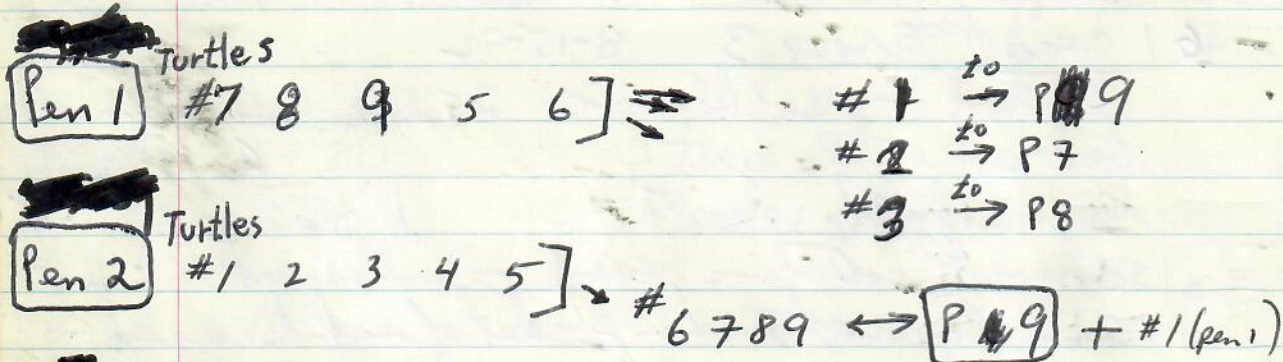 Turtles
Pen 1 #7 8 9 5 6 ] # 1 to → P 9
# 2 to → P7
# 3 to → P8
Turtles
Pen 2 #1 2 3 4 5 ]
# 6 7 8 9 ↔ P 9 + #1 (pen 1)